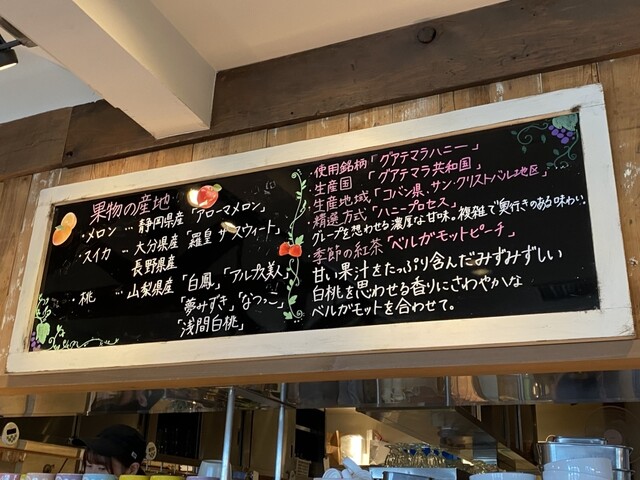 果物の産地
・メロン … 静岡県産「アローマメロン」
・スイカ … 大分県産「羅皇 ザ・スウィート」
長野県産
・桃 … 山梨県産「白鳳」「アルプス美人」
「夢みずき」「なつっこ」
「浅間白桃」
・使用銘柄「グアテマラハニー」
・生産国 「グアテマラ共和国」
・生産地域「コバン県、サン・クリストバル地区」
・精選方式「ハニープロセス」
グレープを想わせる濃厚な甘味。複雑で奥行きのある味わい。
・季節の紅茶「ベルガモットピーチ」
甘い果汁をたっぷり含んだみずみずしい
白桃を思わせる香りにさわやかな
ベルガモットを合わせて。